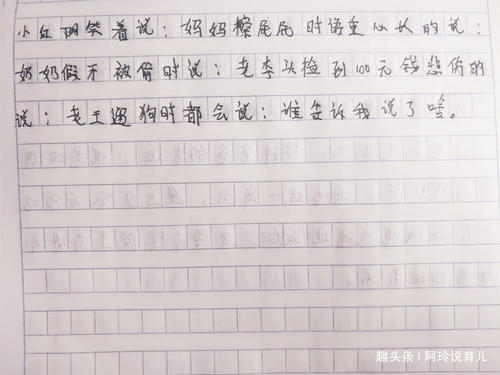 小红阴笑着说：妈妈擦屁屁时语重心长的说：
奶奶假牙被偷时说：老李头捡到100元钱悲伤的
说：老王遛狗时都会说：谁告诉我说了啥。
趣头条 | 阿玲说育儿